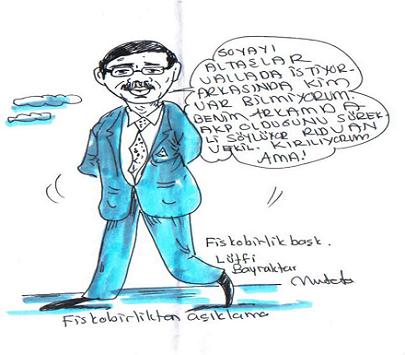 SOYAYI
ALTAŞLAR
VALLADA İSTİYOR.
ARKASINDA KİM
VAR BİLMİYORUM.
BENİM ARKAMDA
AKP OLDUĞUNU SÜREK-
Lİ SÖYLÜYOR RIDVAN
VEKİL. KIRILIYORUM
AMA!
Fiskobirlik başk.
Lütfi
Bayraktar
Fiskobirlikten açıklama